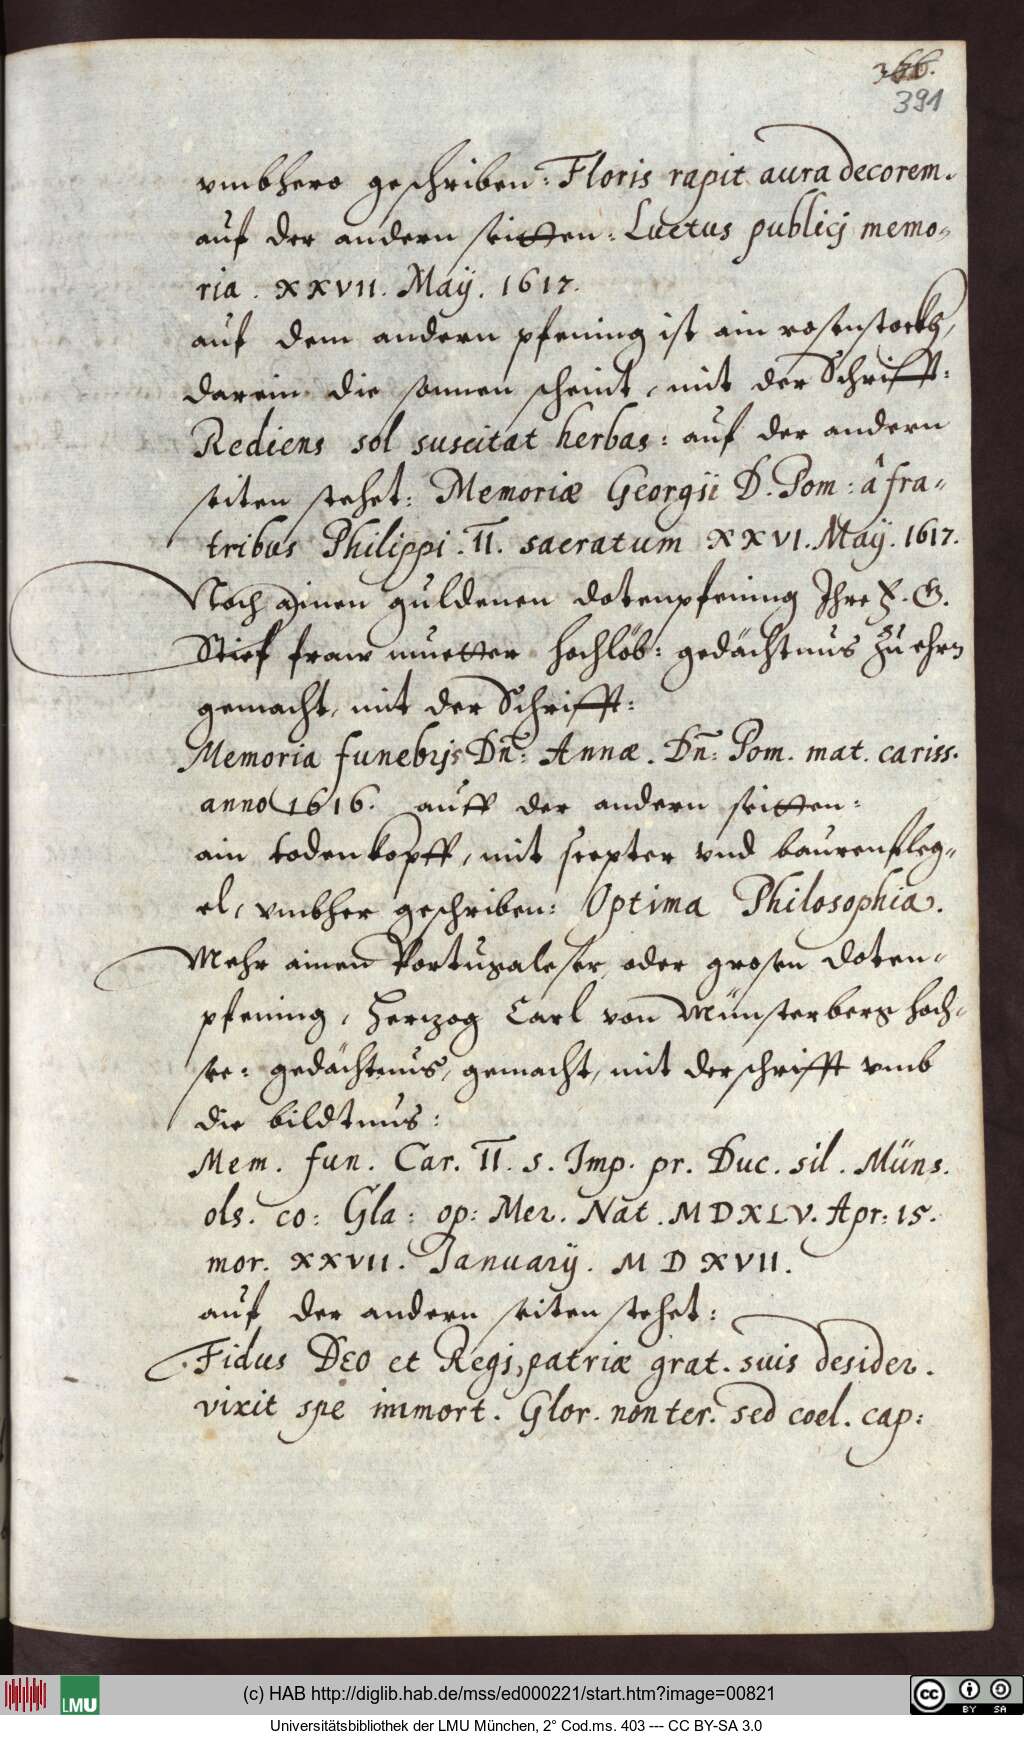 366.
391
vmbhero geschriben: Floris rapit aura decorem.
auf der andern seitten: Luctus publicj memo=
ria. XXVII. Maÿ. 1617.
auf dem andern pfening ist ain rosenstockh,
darein die sonnen scheint, mit der Schrifft:
Rediens sol suscitat herbas: auf der andern
seiten stehet: Memoriæ Georgii D. Pom: â fra=
tribus Philippi. II. sacratum XXVI. Maÿ. 1617.
Noch ainen guldenen dotenpfening Ihre F. G.
Stief fraw muetter hochlöb: gedächtnus zu ehrn
gemacht, mit der Schrifft:
Memoria funebrjs Dn̄: Annæ. Dn̄: Pom. mat. cariss.
anno 1616. auff der andern seitten:
ain todenkopff, mit scepter vnd baurenfleg=
el, vmbher geschriben: Optima Philosophia.
Mehr ainen Portugaleser, oder grosen doten=
pfening, herzog Carl von Münsterberg hoch=
see: gedächtnus, gemacht, mit der schrifft vmb
die bildtnus:
Mem. fun. Car. II. s. Imp. pr. Duc. sil. Müns.
ols. co: Gla: op: Mer. Nat. MDXLV. Apr: 15.
mor. XXVII. Januarÿ. MDXVII.
auf der andern seiten stehet:
Fidus DEO et Regi, patriæ grat. suis desider.
vixit spe immort. Glor. non ter. sed coel. cap:
LMU
(c) HAB http://diglib.hab.de/mss/ed000221/start.htm?image=00821
cc BY SA
Universitätsbibliothek der LMU München, 2° Cod.ms. 403 --- CC BY-SA 3.0